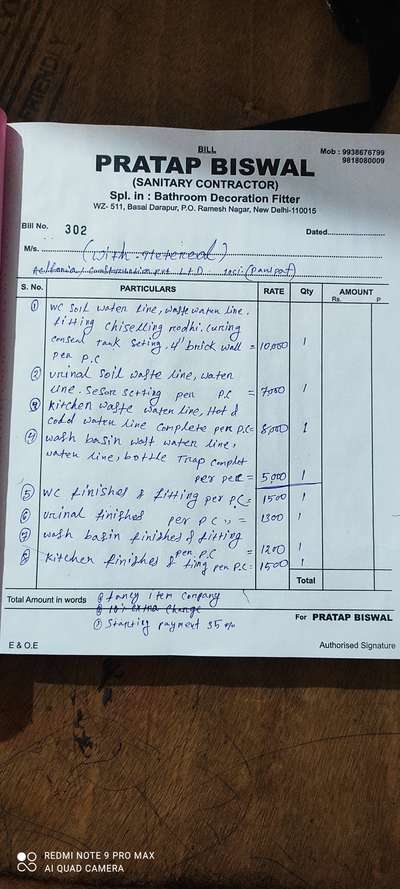 BILL
Mob : 9938676799
9818080009
PRATAP BISWAL
(SANITARY CONTRACTOR)
Spl. in : Bathroom Decoration Fitter
WZ- 511, Basai Darapur, P.O. Ramesh Nagar, New Delhi-110015
Bill No. 302 Dated
M/s. (with
LTD
S. No. PARTICULARS RATE Qty AMOUNT
Rs. P
① WC soil water line, waste water line.
fitting chiselling rodhi. curing
conseal tank seting. 4" brick wall = 10,000 1
per P.C
② urinal soil waste line, water
line. sesor setting per P.C = 7000 1
③ kitchen waste water line, Hot &
cold water line complete per P.C= 8000 1
④ wash basin wast water line,
water line, bottle Trap complet
per pec = 5000 1
⑤ WC finishes & fitting per P.C= 1500 1
⑥ urinal finishes per P C = 1300 1
⑦ wash basin finishes & fitting
per P.C = 1200 1
⑧ kitchen finishes & ting per P.C= 1500 1
Total
Total Amount in words
fancy item company
10% extra charge
starting payment 35%
For PRATAP BISWAL
E & O.E Authorised Signature
REDMI NOTE 9 PRO MAX
AI QUAD CAMERA